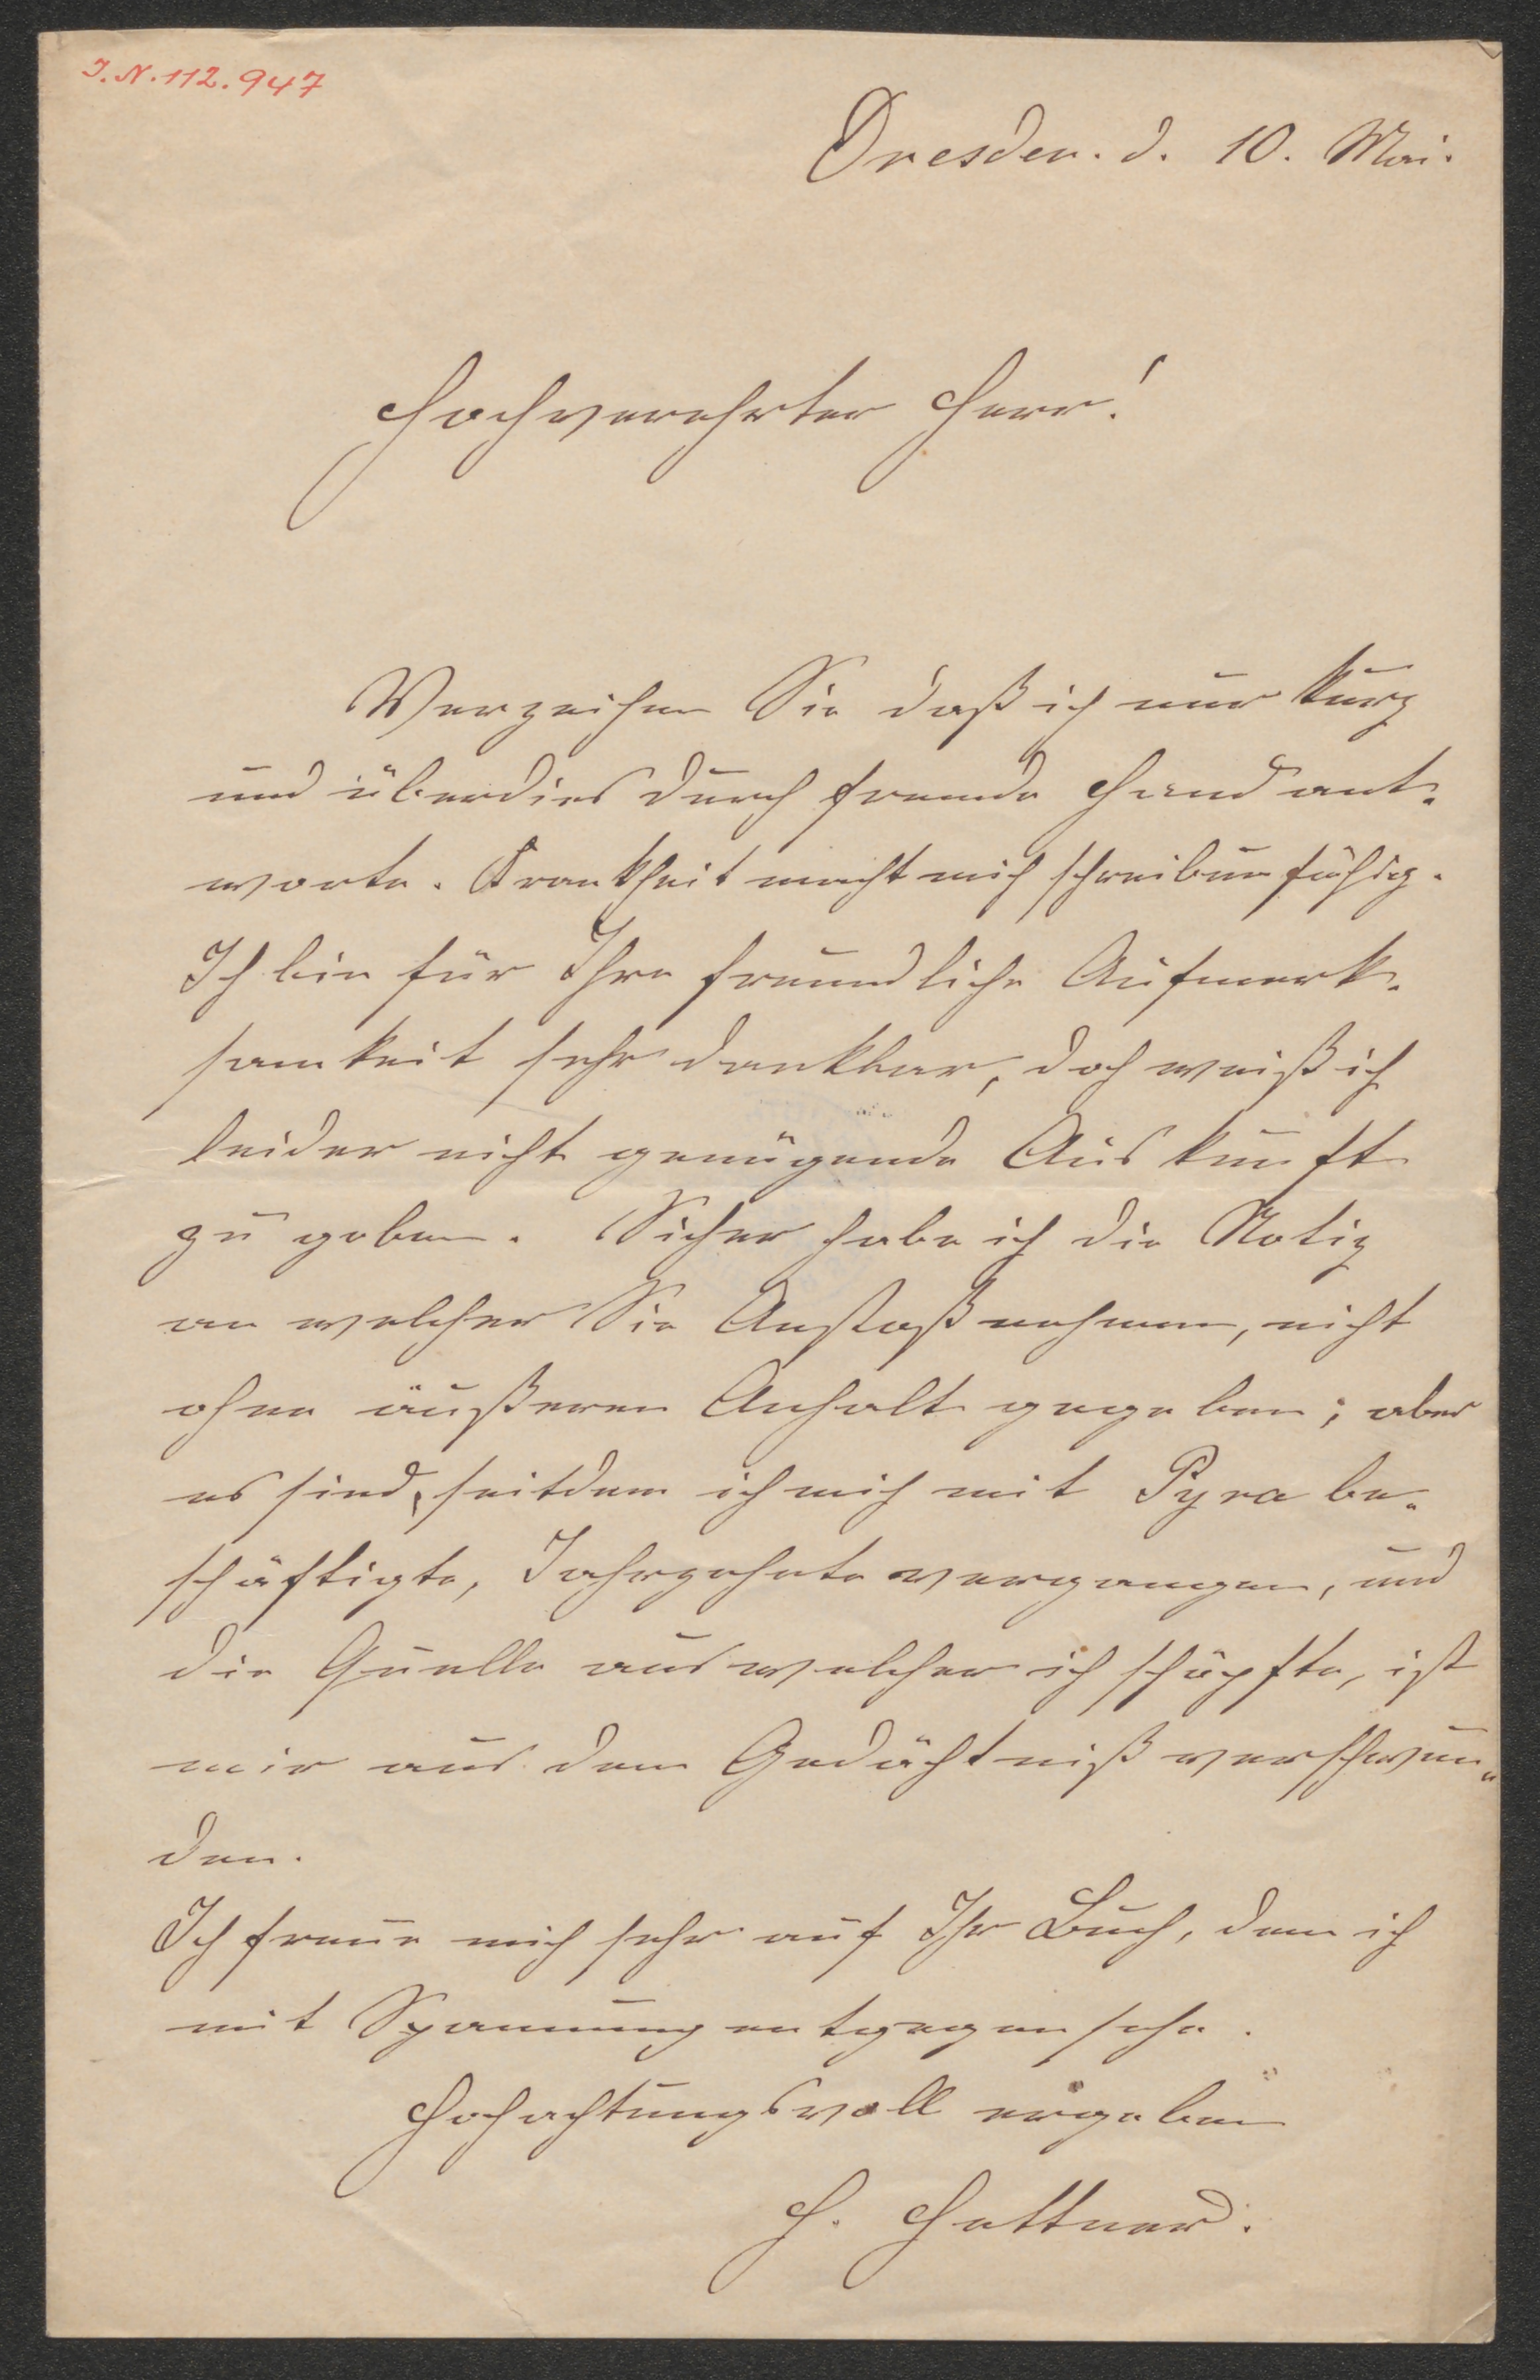 I.N. 112.947
Dresden. d. 10. Mai.
Hochverehrter Herr!
Verzeihen Sie daß ich nur kurz
und überdies durch fremde Hand ant-
worte. Krankheit macht mich schreibunfähig.
Ich bin für Ihre freundliche Aufmerk-
samkeit sehr dankbar, doch weiß ich
leider nicht genügende Auskunft
zu geben. Sicher habe ich die Notiz
an welcher Sie Anstoß nehmen, nicht
ohne äußeren Anhalt gegeben; aber
es sind, seitdem ich mich mit Pyra be-
schäftigte, Jahrzehnte vergangen, und
die Quelle aus welcher ich schöpfte, ist
mir aus dem Gedächtniß verschwun-
den.
Ich freue mich sehr auf Ihr Buch, dem ich
mit Spannung entgegensehe.
Hochachtungsvoll ergeben
H. Hettner.